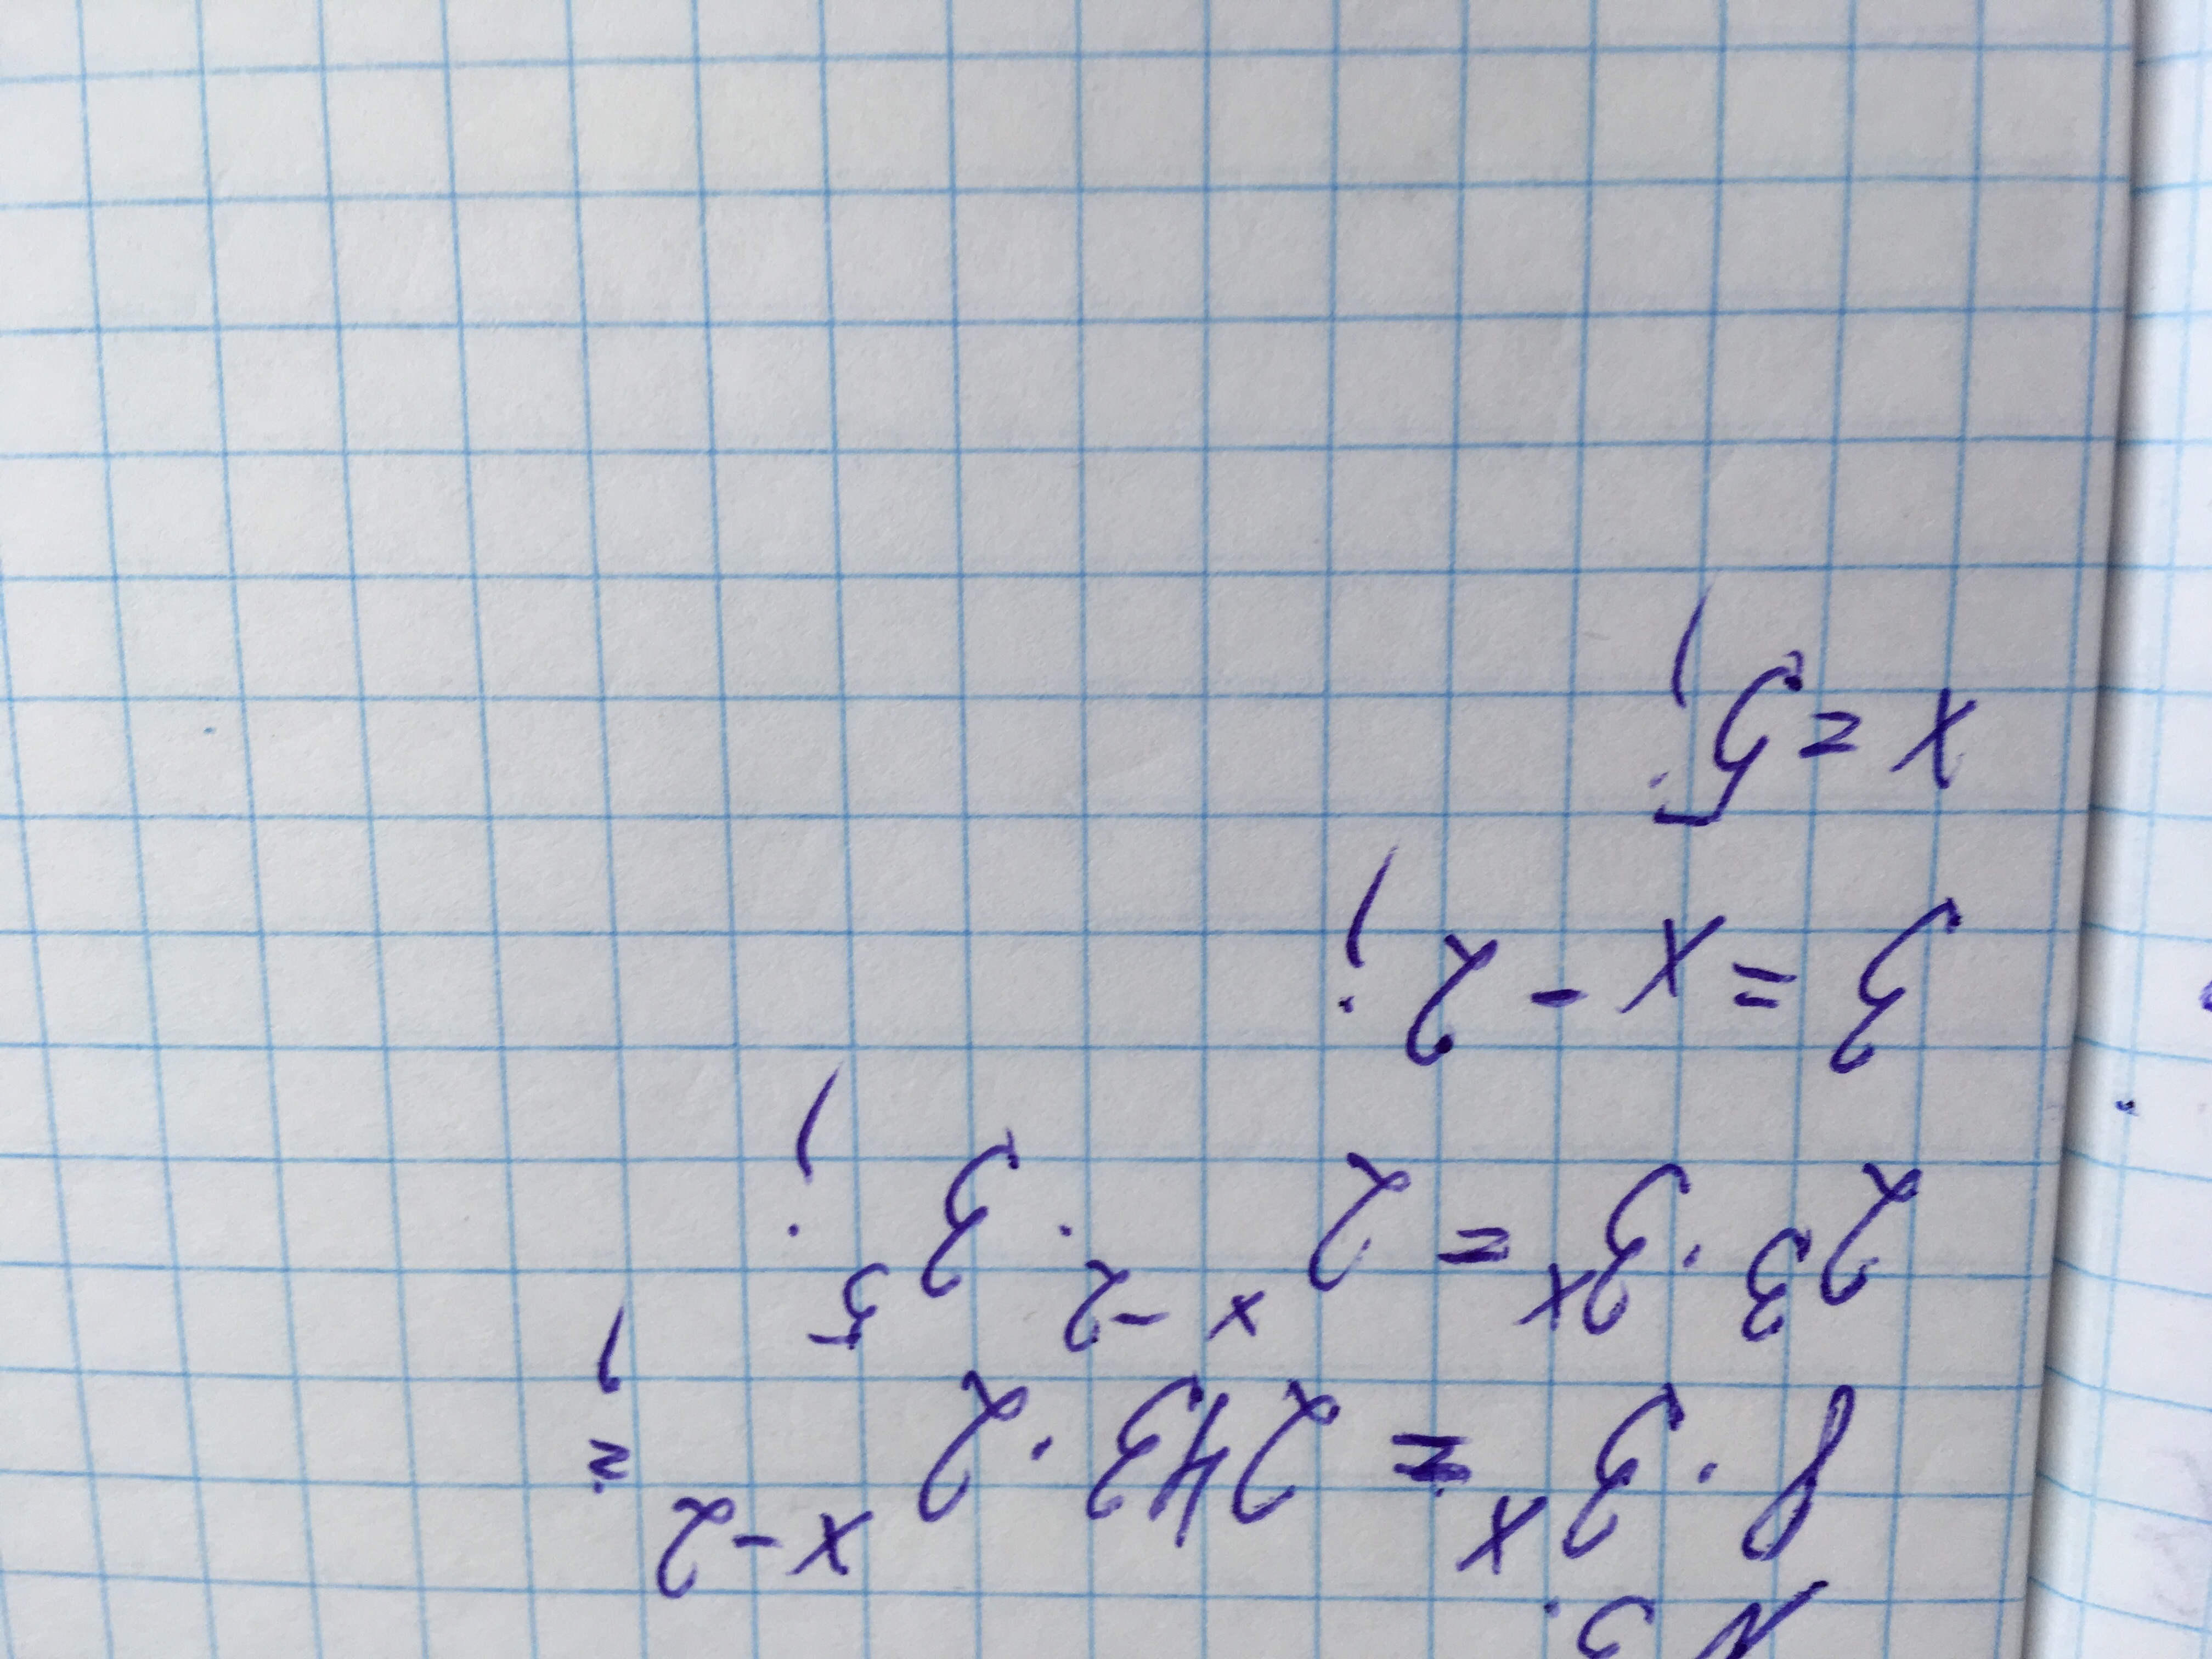 N 3.
8 · 3^x = 243 · 2^(x-2) =;
2^3 · 3^x = 2^(x-2) · 3^5;
3 = x - 2;
x = 5;